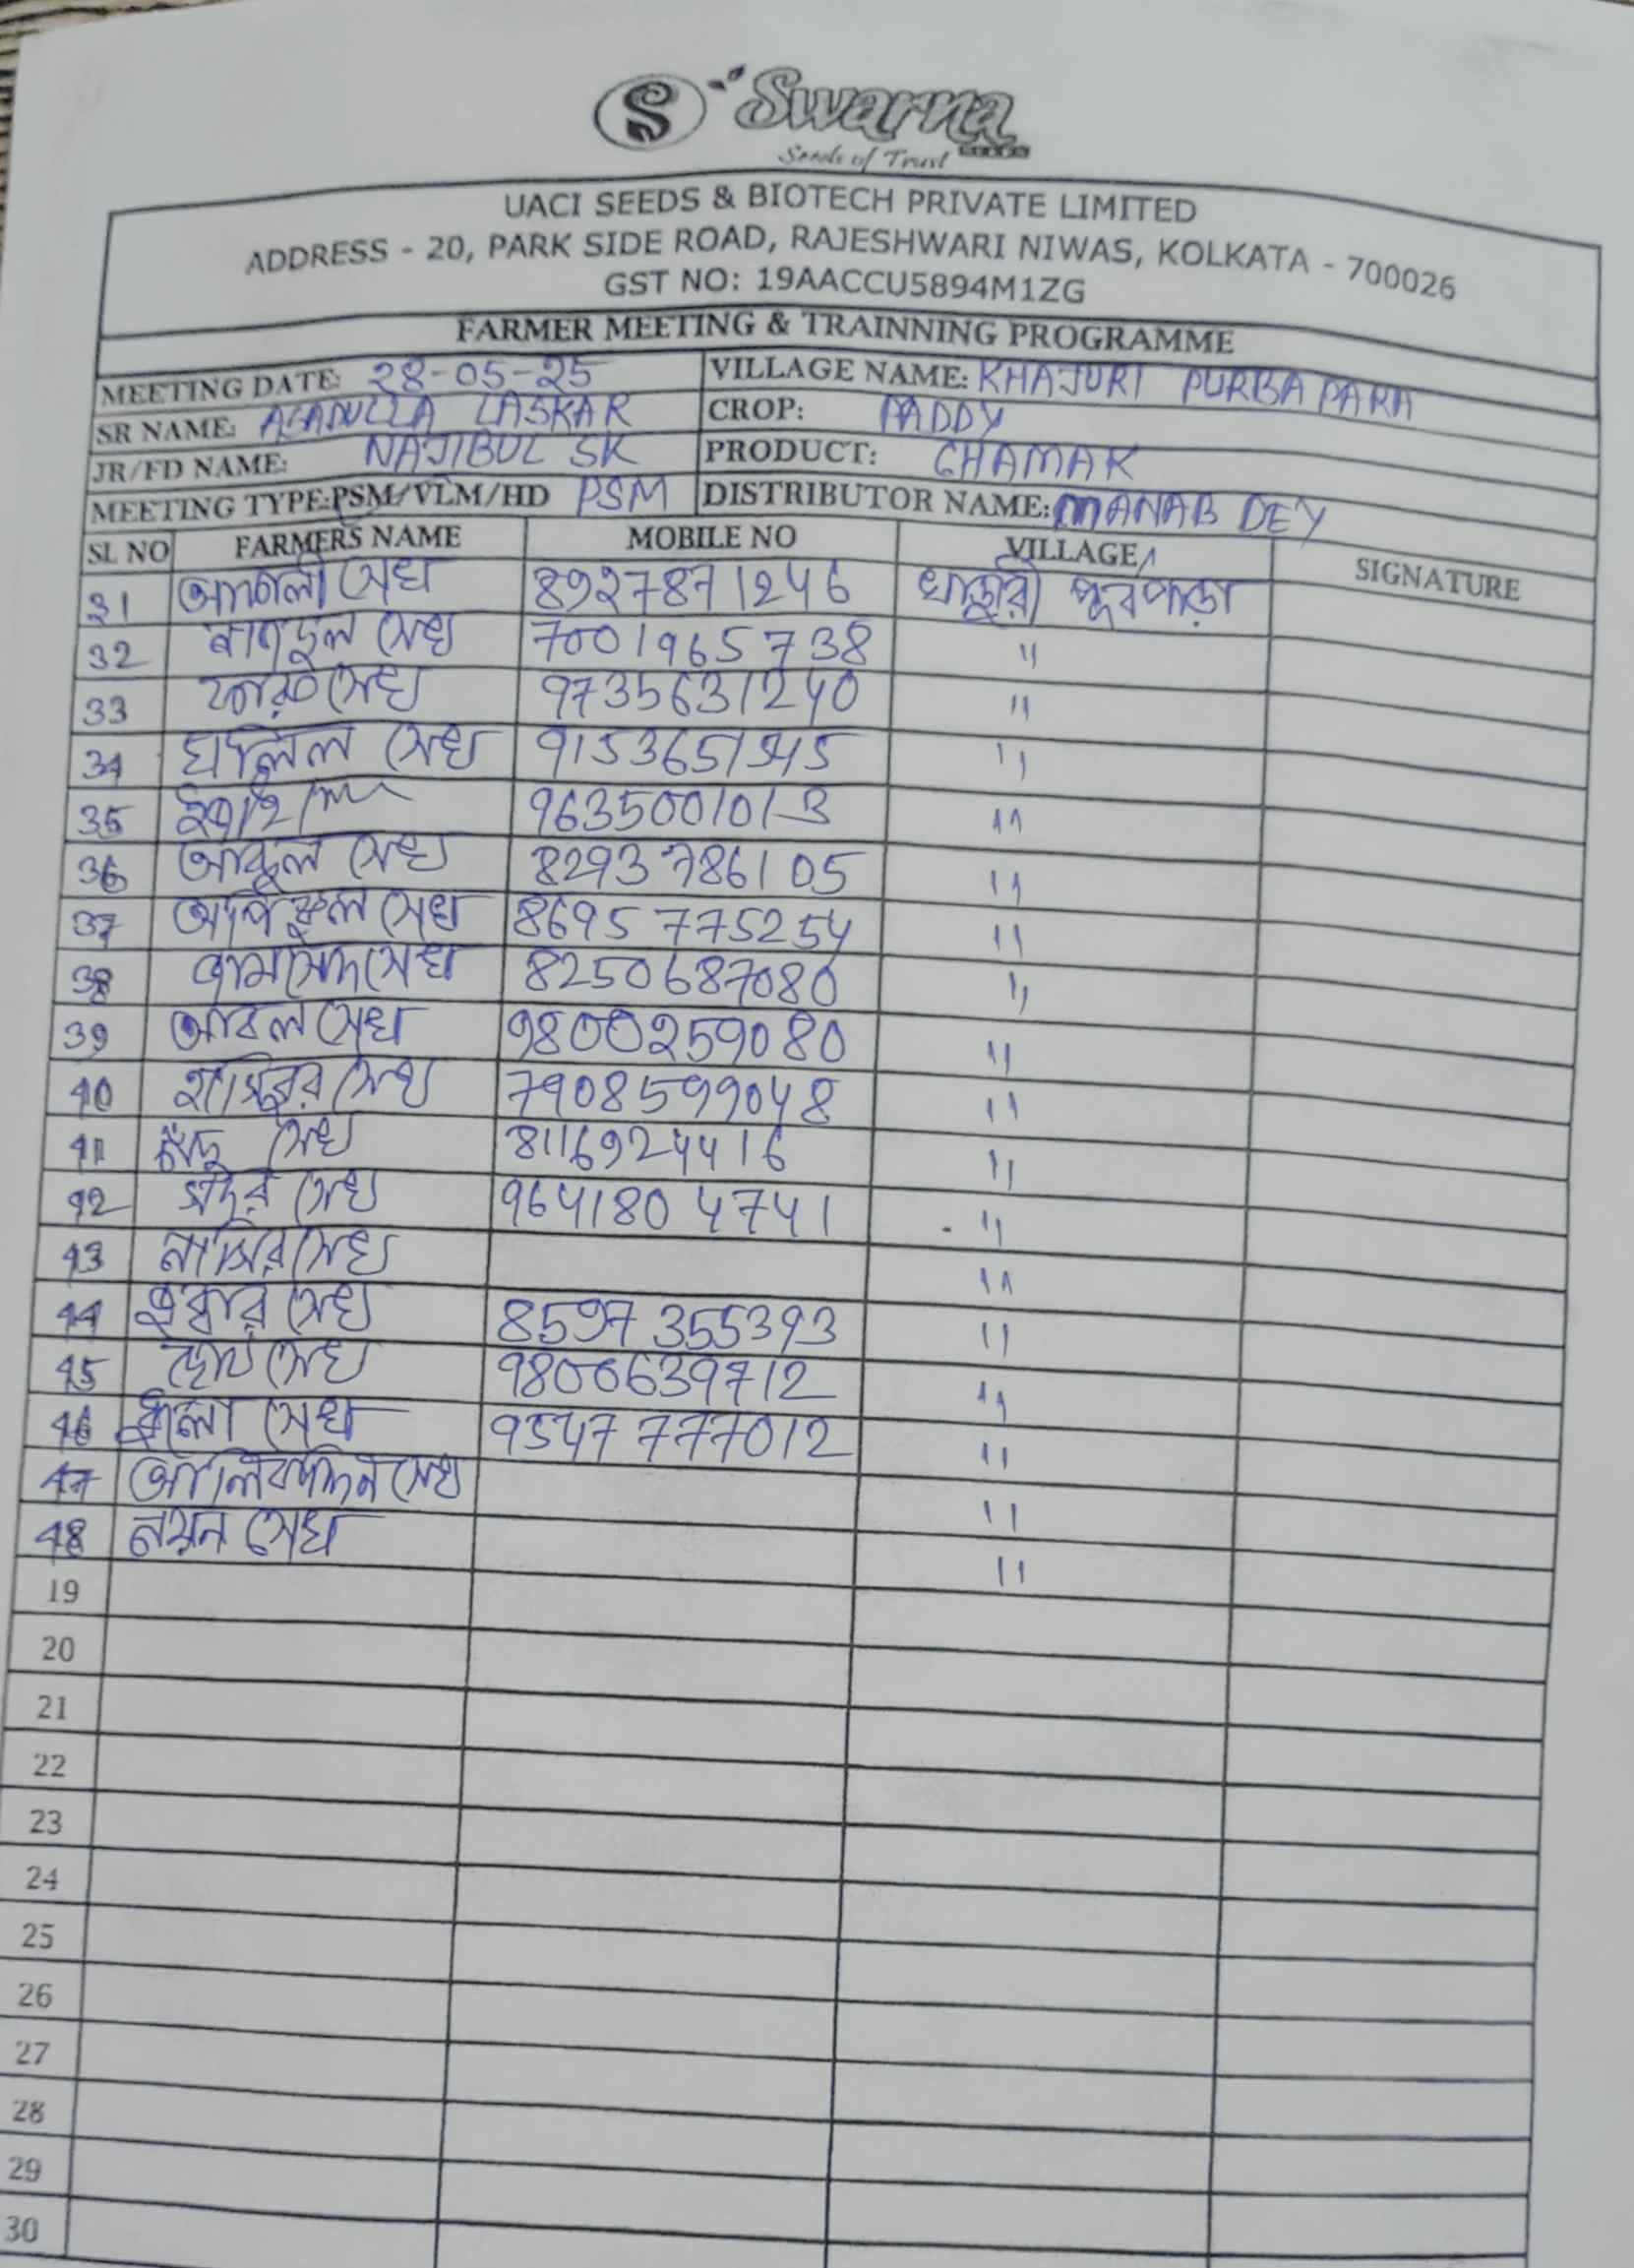 S Swarna
Seeds of Trust SEEDS
UACI SEEDS & BIOTECH PRIVATE LIMITED
ADDRESS - 20, PARK SIDE ROAD, RAJESHWARI NIWAS, KOLKATA - 700026
GST NO: 19AACCU5894M1ZG
FARMER MEETING & TRAINNING PROGRAMME
MEETING DATE: 28-05-25 VILLAGE NAME: KHAJURI PURBA PARA
SR NAME: ASADULLA LASKAR CROP: PADDY
JR/FD NAME: NAJIBUL SK PRODUCT: CHAMAK
MEETING TYPE:PSM/VLM/HD PSM DISTRIBUTOR NAME: MANAB DEY
SL NO FARMERS NAME MOBILE NO VILLAGE SIGNATURE
31 সেখ 8927871246 খাজুরী পুবপাড়া
32 সেখ 7001965738 "
33 সেখ 9735631240 "
34 খলিল সেখ 9153651545 "
35 "
36 আকুল সেখ 8293786105 "
37 সেখ 8695775254 "
38 জামসেদ সেখ 8250687080 "
39 আবুল সেখ 9800259080 "
40 সেখ 7908599048 "
41 সেখ 8116924416 "
42 সেখ 9641804741 "
43 নাসির সেখ "
44 সেখ 8597355393 "
45 সেখ 9800639712 "
46 সেখ 9547777012 "
47 সেখ "
48 নয়ন সেখ "
19
20
21
22
23
24
25
26
27
28
29
30